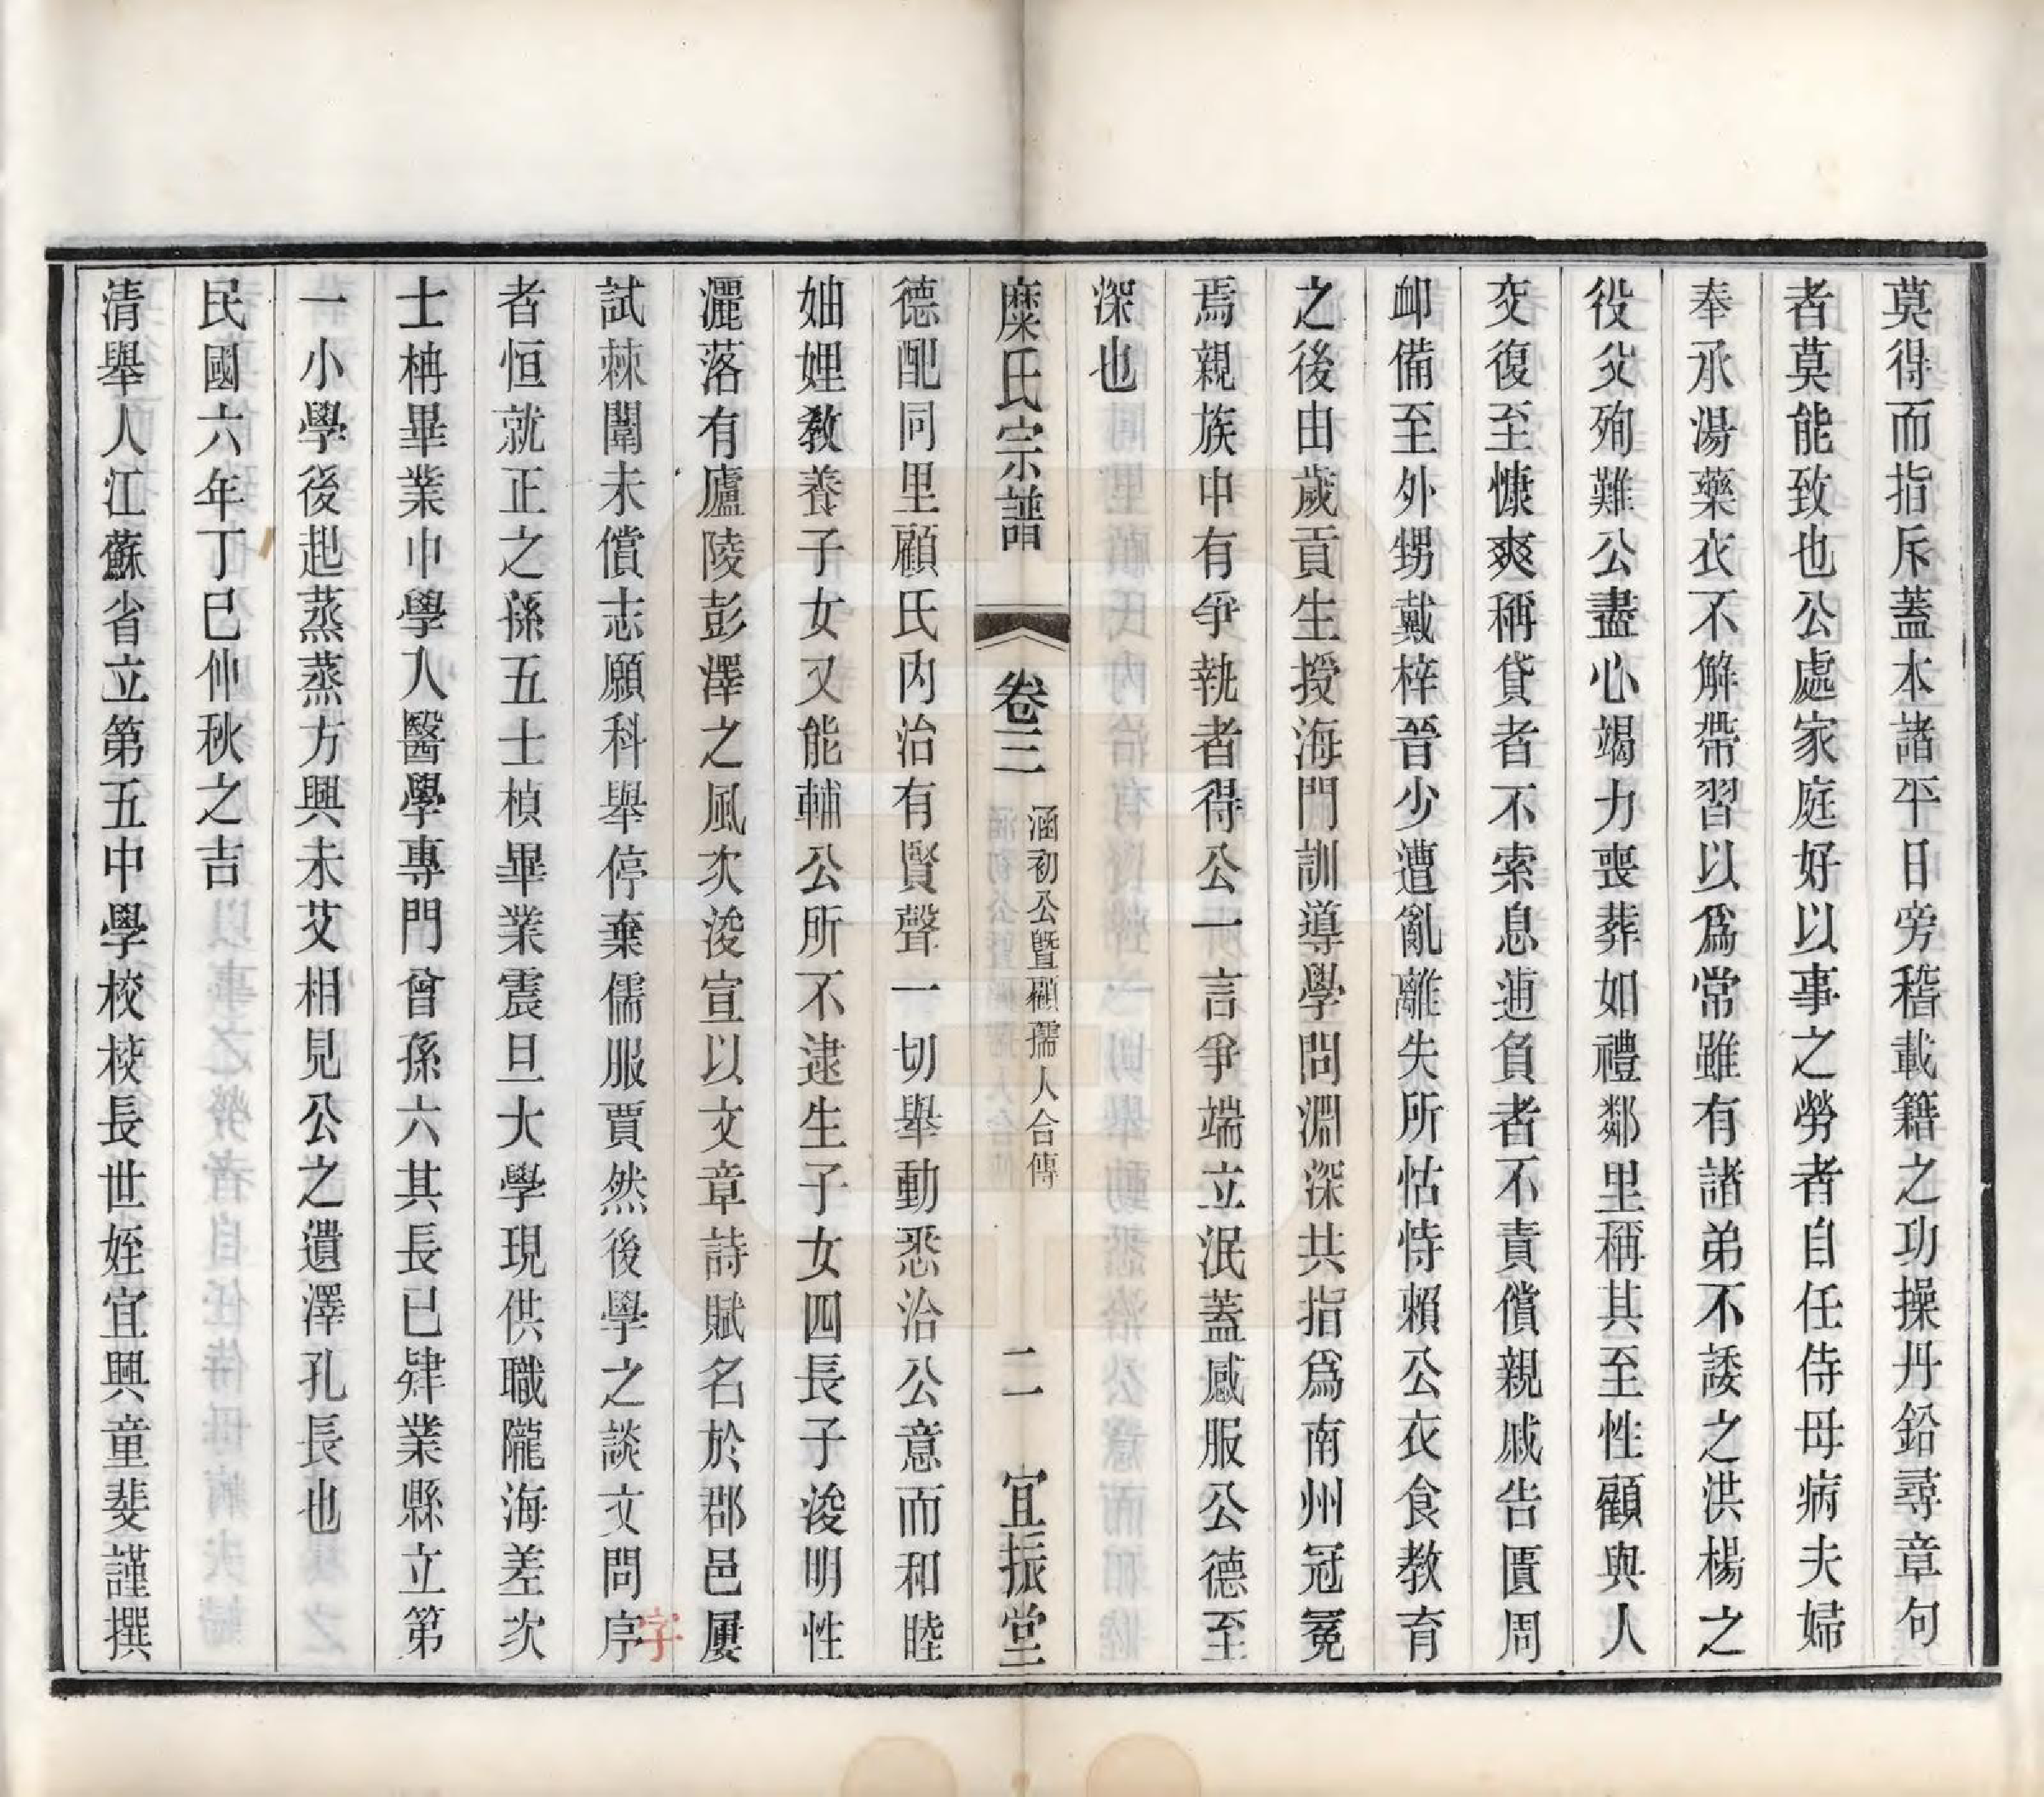 莫得而指斥蓋本諸平日旁稽載籍之功操丹鉛尋章句
者莫能致也公處家庭好以事之勞者自任侍母病夫婦
奉承湯藥衣不解帶習以爲常雖有諸弟不諉之洪楊之
役父殉難公盡心竭力喪葬如禮鄰里稱其至性顧與人
交復至慷爽稱貸者不索息逋負者不責償親戚告匱周
卹備至外甥戴梓晉少遭亂離失所怙恃賴公衣食教育
之後由歲貢生授海門訓導學問淵深共指爲南州冠冕
焉親族中有爭執者得公一言爭端立泯蓋感服公德至
深也
糜氏宗譜 卷三 涵初公暨顧孺人合傳 二 宜振堂
德配同里顧氏内治有賢聲一切舉動悉洽公意而和睦
妯娌教養子女又能輔公所不逮生子女四長子浚明性
灑落有廬陵彭澤之風次浚宣以文章詩賦名於郡邑屢
試棘闈未償志願科舉停棄儒服賈然後學之談文問字
者恒就正之孫五士楨畢業震旦大學現供職隴海差次
士柟畢業巾學入醫學專門曾孫六其長已肄業縣立第
一小學後起蒸蒸方興未艾相見公之遺澤孔長也
民國六年丁巳仲秋之吉
清舉人江蘇省立第五中學校校長世姪宜興童斐謹撰